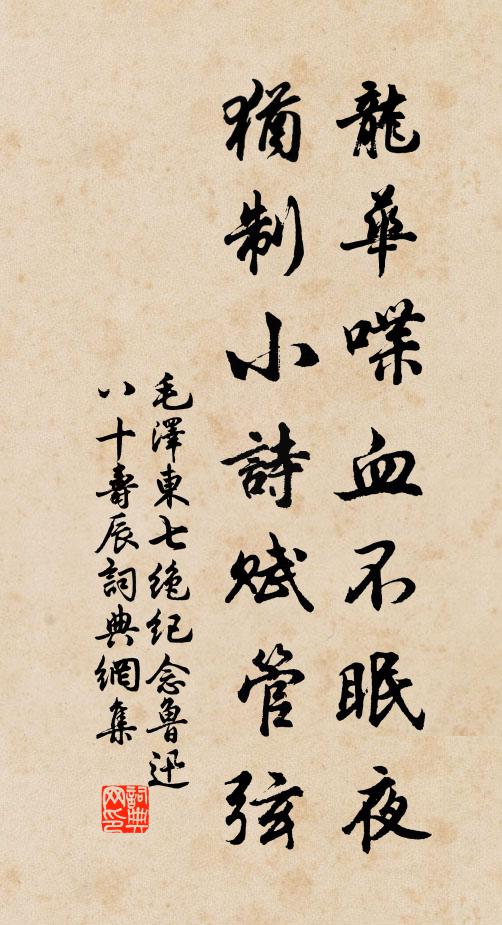 龍華喋血不眠夜
猶制小詩賦管弦
毛澤東七绝纪念魯迅
八十壽辰詞典網集
詞典网印